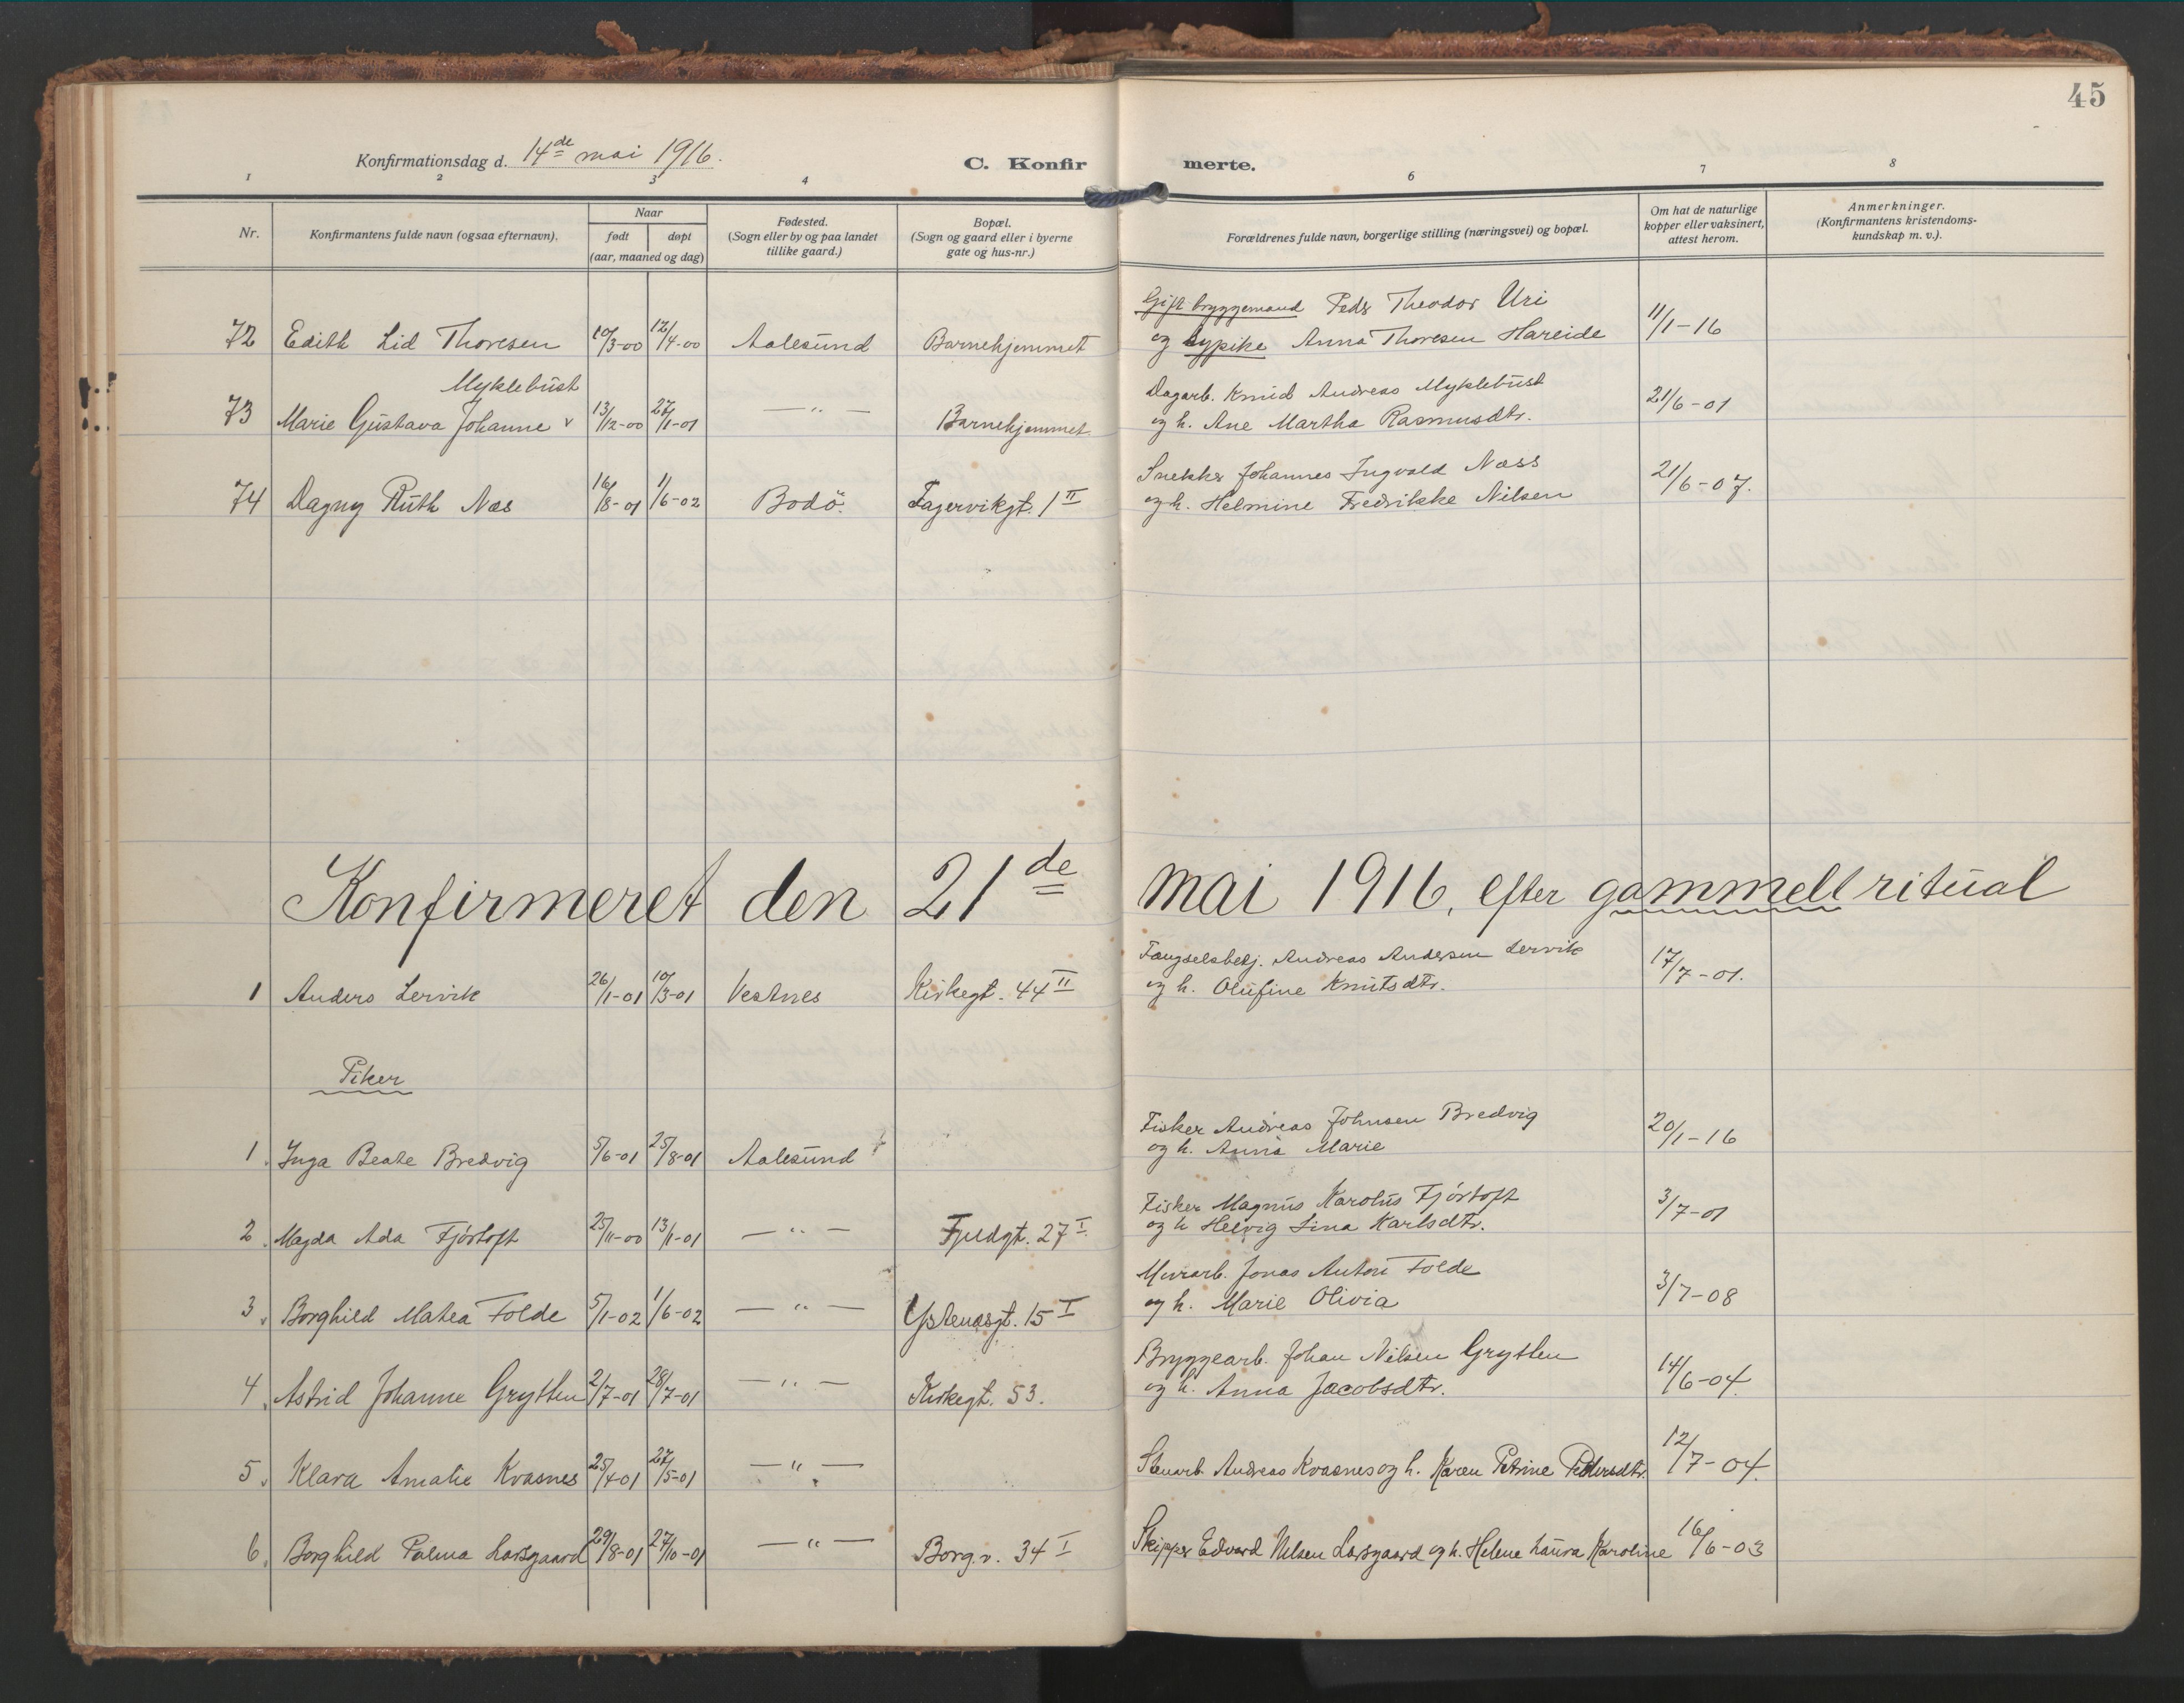 45
Konfirmationsdag d. 14de mai 1916.
C. Konfirmerte.
1 2 3 4 6 7 8
Nr.
Konfirmantens fulde navn (ogsaa efternavn).
Naar
født døpt
(aar, maaned og dag)
Fødested.
(Sogn eller by og paa landet
tillike gaard.)
Bopæl.
(Sogn og gaard eller i byerne
gate og hus-nr.)
Forældrenes fulde navn, borgerlige stilling (næringsvei) og bopæl.
Om hat de naturlige
kopper eller vaksinert,
attest herom.
Anmerkninger.
(Konfirmantens kristendoms-
kundskap m. v.).
Gift bryggemand Peds Theodor Uri
72 Edith Lid Thoresen 10/3-00 12/4-00 Aalesund Barnehjemmet og pike Anna Thoresen Hareide 11/1-16
Myklebust
Dagarb. Knud Andreas Myklebust
73 Marie Gustava Johanne v 13/12-00 27/1-01 — " — Barnehjemmet og h. Ane Martha Rasmusdtr. 21/6-01
Snekker Johannes Ingvald Næss
74 Dagny Ruth Næs 16/8-01 1/6-02 Bodö. Fagervikgt. 1 II og h. Helmine Fredrikke Nilsen 21/6-07.
Konfirmeret den 21de mai 1916, efter gammelt ritual
Fængselsbetj. Andreas Andersen Lervik
1 Anders Lervik 26/1-01 10/3-01 Vestnes Kirkegt. 44 II og h. Olufine Knutsdtr. 17/7-01.
Piker
Fisker Andreas Johnsen Bredvig
1. Inga Beate Bredvig 5/6-01 25/8-01 Aalesund og h. Anna Marie 20/1-16
Fisker Magnus Karolus Fjörtoft
2. Magda Ada Fjörtoft 25/11-00 13/1-01 — " — Fjeldgt. 27 I og h Helvig Lina Karlsdtr. 3/7-01
Murarb. Jonas Anton Folde
3. Borghild Matea Folde 5/1-02 1/6-02 — " — Ystenæsgt. 15 I og h. Marie Olivia 3/7-08
Bryggearb. Johan Nilsen Grytten
4. Astrid Johanne Grytten 2/7-01 28/7-01 — " — Kirkegt. 53. og h. Anna Jacobsdtr. 14/6-04.
5. Klara Amalie Kvasnes 25/4-01 27/5-01 — " — Stuarb. Andreas Kvasnes og h. Karen Petrine Pedersdtr. 12/7-04.
6. Borghild Palma Larsgaard 29/8-01 27/10-01 — " — Borg.v. 34 I Skipper Edvard Nilsen Larsgaard og h. Helene Laura Karoline 16/6-03